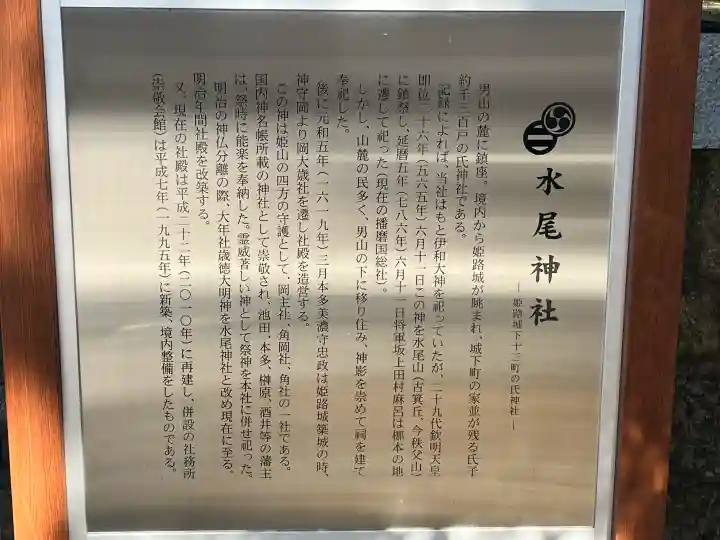 水尾神社
―姫路城下十三町の氏神社―
男山の麓に鎮座。境内から姫路城が眺まれ、城下町の家並が残る氏子
約千三百戸の氏神社である。
記録によれば、当社はもと伊和大神を祀っていたが、二十九代欽明天皇
即位二十六年（五六五年）六月十一日この神を水尾山（古箕丘、今秩父山）
に鎮祭し、延暦五年（七八六年）六月十一日将軍坂上田村麻呂は梛本の地
に遷して祀った（現在の播磨国総社）。
しかし、山麓の民多く、男山の下に移り住み、神影を崇めて祠を建て
奉祀した。
後に元和五年（一六一九年）三月本多美濃守忠政は姫路城築城の時、
神守岡より岡大歳社を遷し社殿を造営する。
この神は姫山の四方の守護として、岡主社、角岡社、角社の一社である。
国内神名帳所載の神社として崇敬され、池田、本多、榊原、酒井等の藩主
は、祭時に能楽を奉納した。霊威著しい神として祭神を本社に併せ祀った。
明治の神仏分離の際、大年社歳徳大明神を水尾神社と改め現在に至る。
明治年間社殿を改築する。
又、現在の社殿は平成二十二年（二〇一〇年）に再建し、併設の社務所
（崇敬会館）は平成七年（一九九五年）に新築、境内整備をしたものである。